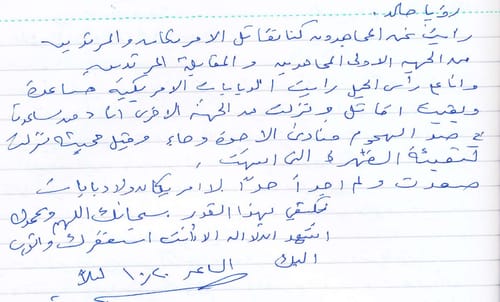 رؤيا خالد.
رايت نحن المجاهدون كنا نقاتل الامريكان والمرتدين
من الجهة الاولى المجاهدين و المقابلة المرتدين
وانا على رأس الجبل رايت الدبابات الامريكية صاعدة
وبقيت اقاتل ونزلت من الجهة الاخرى
في صد الهجوم فنادى الاخوة وجاء وقبل نزلت
لتعبئة التي انتهت
صعدت ولم اجد احدًا لا امريكان ولا دبابات
نكتفي بهذا القدر. سبحانك اللهم وبحمدك
اشهد ان لا اله الا أنت استغفرك واتوب
اليك الساعة ١٠،٢٠ ليلاً